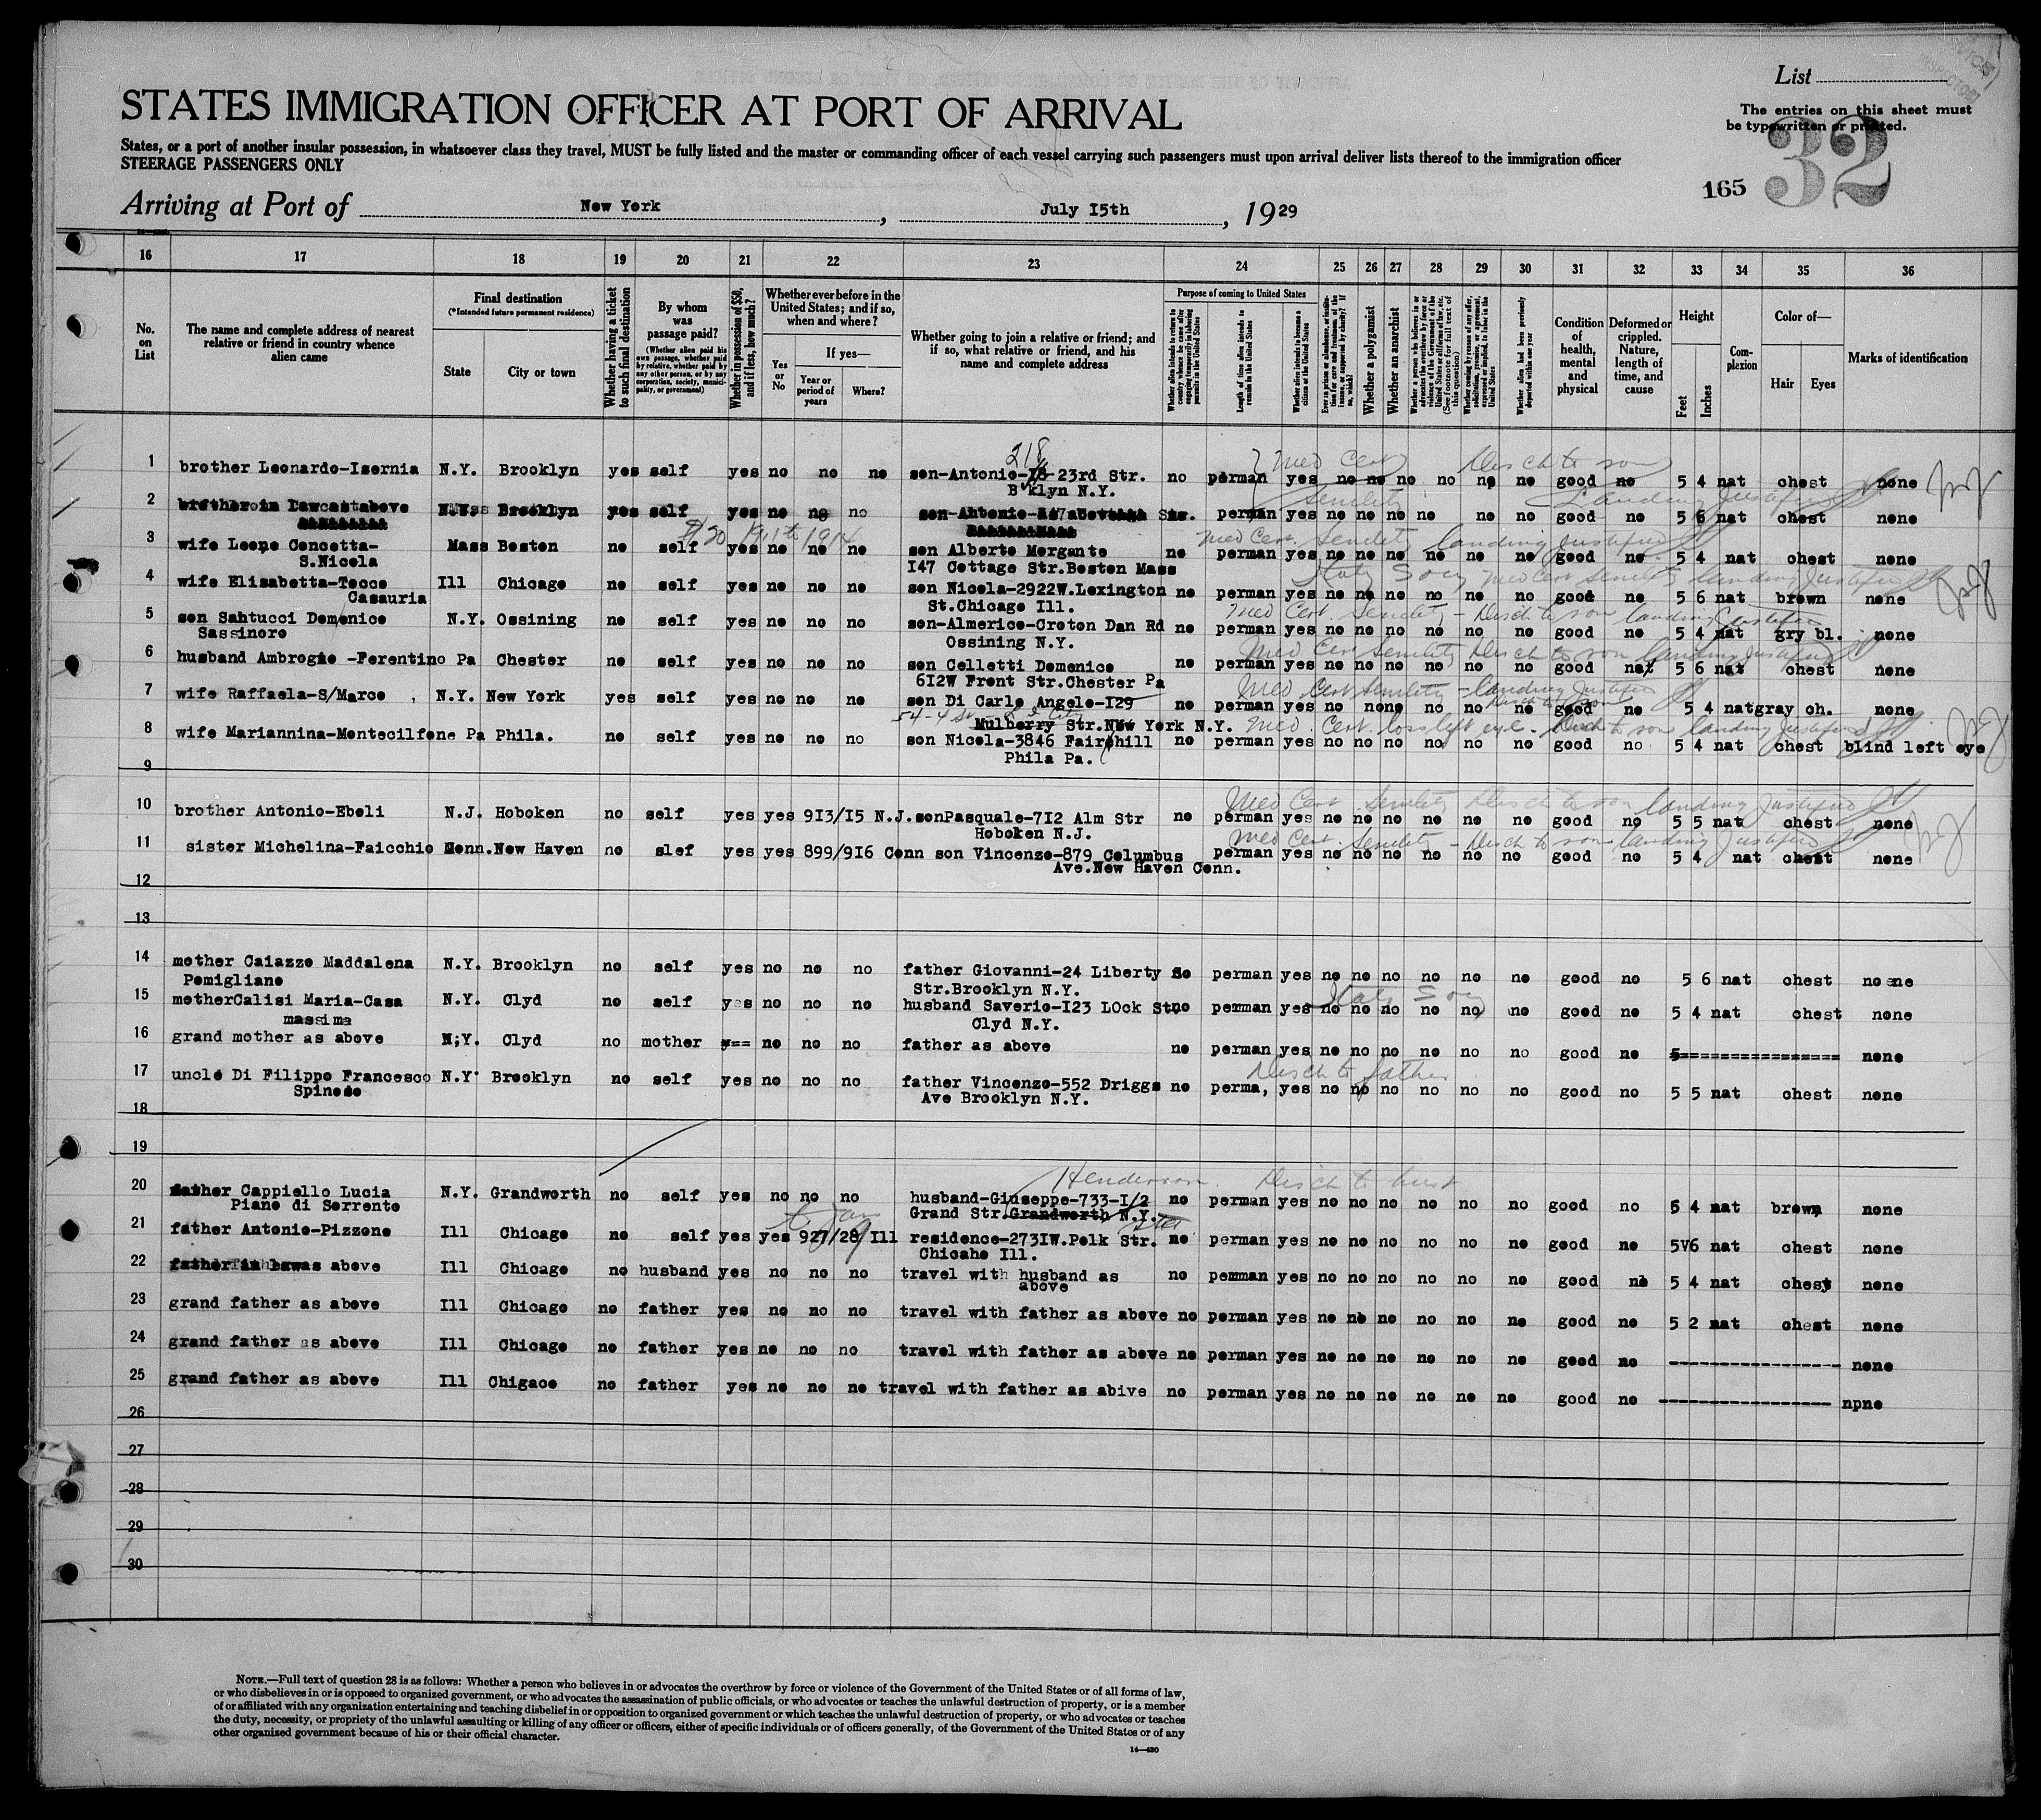 List
The entries on this sheet must
be typewritten or printed.
STATES IMMIGRATION OFFICER AT PORT OF ARRIVAL
32
165
States, or a port of another insular possession, in whatsoever class they travel, MUST be fully listed and the master or commanding officer of each vessel carrying such passengers must upon arrival deliver lists thereof to the immigration officer
STEERAGE PASSENGERS ONLY
Arriving at Port of New York, July I5th, 1929
16 17 18 19 20 21 22 23 24 25 26 27 28 29 30 31 32 33 34 35 36
No. on List
The name and complete address of nearest relative or friend in country whence alien came
Final destination
(*Intended future permanent residence)
State
City or town
Whether having a ticket to such final destination
By whom was passage paid?
(Whether alien paid his own passage, whether paid by relative, whether paid by any other person, or by any corporation, society, municipality, or government)
Whether in possession of $50, and if less, how much?
Whether ever before in the United States; and if so, when and where?
Yes or No
If yes—
Year or period of years
Where?
Whether going to join a relative or friend; and if so, what relative or friend, and his name and complete address
Purpose of coming to United States
Length of time alien intends to remain in the United States
Whether alien intends to become a citizen of the United States
Whether a polygamist
Whether an anarchist
Condition of health, mental and physical
Deformed or crippled. Nature, length of time, and cause
Height
Feet
Inches
Complexion
Color of—
Hair
Eyes
Marks of identification
218
Med Cert Disch to son
1 brother Leonardo-Isernia N.Y. Brooklyn yes self yes no no no son-Antonio- 23rd Str. no perman yes no no no no no no good no 5 4 nat chest none
B'klyn N.Y.
Senility Landing Justified
2 self yes no no no perman yes no no no no no no good no 5 6 nat chest none
$20 1911 to 1914
Med Cert. Senility landing justified
3 wife Leone Concetta- Mass Boston no self yes no no no son Alberto Morgante no perman yes no no no no no no good no 5 4 nat chest none
S.Nicola I47 Cottage Str.Boston Mass
Med Cert Senility landing Justified
4 wife Elisabetta-Tocco Ill Chicago no self yes no no no son Nicola-2922W.Lexington no perman yes no no no no no no good no 5 6 nat brown none
Casauria St.Chicago Ill.
Med Cert. Senility - Disch to son landing Justified
5 son Sahtucci Domenico N.Y. Ossining no self yes no no no son-Almerico-Croton Dan Rd no perman yes no no no no no no good no 5 4 nat gry bl. none
Sassinoro Ossining N.Y.
Med Cert Senility Disch to son landing Justified
6 husband Ambrogio -Ferentino Pa Chester no self yes no no no son Celletti Domenico no perman yes no no no no no no good no 5 6 nat chest none
6I2W Front Str.Chester Pa
Med Cert Senility - landing Justified
7 wife Raffaela-S/Marco N.Y. New York yes self yes no no no son Di Carlo Angelo-I29 no perman yes no none no no no good no 5 4 natgray ch. none
Mulberry Str.New York N.Y.
Med. Cert. loss left eye - Disch to son landing justified
8 wife Mariannina-Montecilfone Pa Phila. no self yes no no no son Nicola-3846 Fairohill no perman yes no no no no no no good no 5 4 nat chest blind left eye
Phila Pa.
9
Med Cert Senility Disch to son landing Justified
10 brother Antonio-Eboli N.J. Hoboken no self yes yes 9I3/I5 N.J.sonPasquale-7I2 Alm Str no perman yes no no no no no no good no 5 5 nat chest none
Hoboken N.J.
Med Cert. Senility - Disch to son landing Justified
11 sister Michelina-Faicchio Henn.New Haven no slef yes yes 899/9I6 Conn son Vincenzo-879 Columbus perman yes no no no no no no good no 5 4 nat chest none
Ave.New Haven Conn.
12
13
14 mother Caiazzo Maddalena N.Y. Brooklyn no self yes no no no father Giovanni-24 Liberty no perman yes no no no no no no good no 5 6 nat chest none
Pomigliano Str.Brooklyn N.Y.
15 motherCalisi Maria-Casa N.Y. Clyd no self yes no no no husband Saverio-I23 LOck St.no perman yes no no no no no no good no 5 4 nat chest none
massima Clyd N.Y.
16 grand mother as above N;Y. Clyd no mother y== no no no father as above no perman yes no no no no no no good no 5================ none
Disch to father
17 uncle Di Filippo Francesco N.Y. Brooklyn no self yes no no no father Vincenzo-552 Driggs no perma, yes no no no no no no good no 5 5 nat chest none
Spinoso Ave Brooklyn N.Y.
18
19
Henderson Disch to husb
20 father Cappiello Lucia N.Y. Grandworth no self yes no no no husband-Giuseppe-733-I/2 no perman yes no no no no no no good no 5 4 nat brown none
Piano di Sorrento Grand Str.Grandworth N.Y.
21 father Antonio-Pizzone Ill Chicago no self yes yes 927/28 Ill residence-273IW.Polk Str. no perman yes no no no no no no good no 5V6 nat chest none
Chicaho Ill.
22 father in law as above Ill Chicago no husband yes no no no travel with husband as no perman yes no no no no no no good no 5 4 nat chest none
above
23 grand father as above Ill Chicago no father yes no no no travel with father as above no perman yes no no no no no no good no 5 2 nat chest none
24 grand father as above Ill Chicago no father yes no no no travel with father as above no perman yes no no no no no no good no ------------------ none
25 grand father as above Ill Chigaco no father yes no no no travel with father as abive no perman yes no no no no no no good no ------------------ npne
26
27
28
29
30
NOTE.—Full text of question 28 is as follows: Whether a person who believes in or advocates the overthrow by force or violence of the Government of the United States or of all forms of law,
or who disbelieves in or is opposed to organized government, or who advocates the assassination of public officials, or who advocates or teaches the unlawful destruction of property, or is a member
of or affiliated with any organization entertaining and teaching disbelief in or opposition to organized government or which teaches the unlawful destruction of property, or who advocates or teaches
the duty, necessity, or propriety of the unlawful assaulting or killing of any officer or officers, either of specific individuals or of officers generally, of the Government of the United States or of any
other organized government because of his or their official character.
14—430